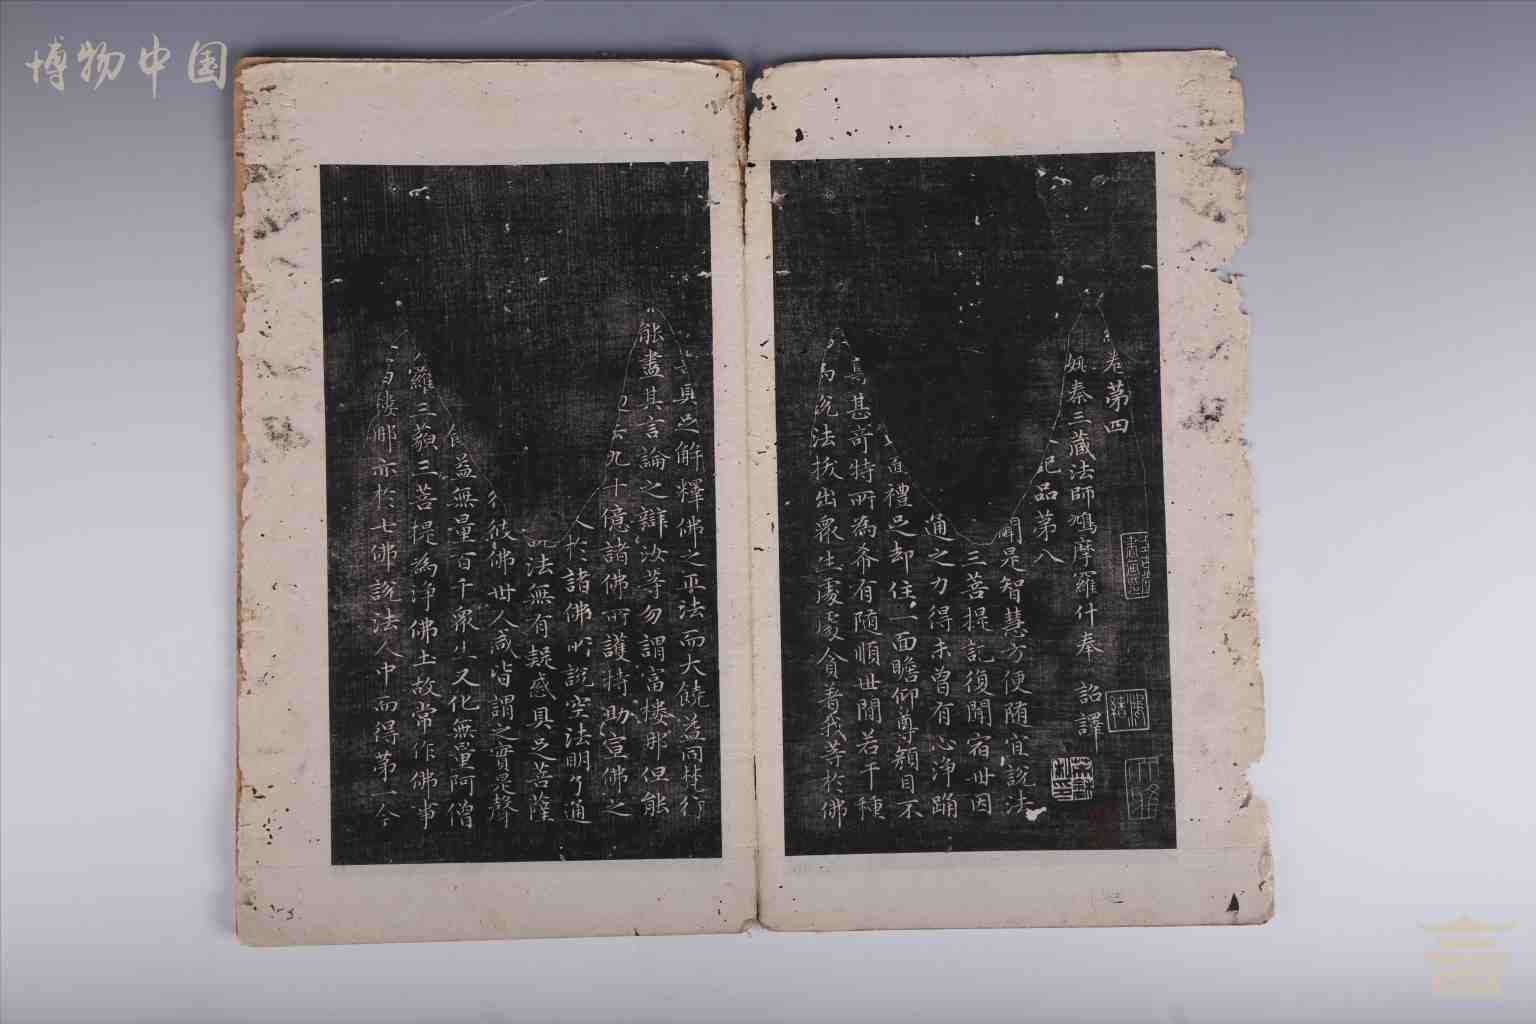 博物中国
卷苐四
姚秦三藏法師鳩摩羅什奉 詔譯
記品苐八
聞是智慧方便随宜說法
三菩提記復聞宿世因
通之力得未曾有心淨踊
禮足却住一面瞻仰尊顏目不
甚竒特所為希有随順世間若干種
為說法拔出衆生處處貪著我等於佛
具足解釋佛之正法而大饒益同梵行
能盡其言論之辯汝等勿謂富樓那但能
九十億諸佛所護持助宣佛之
人於諸佛所說空法明了通
法無有疑惑具足菩薩
彼佛世人咸皆謂之實是聲
益無量百千衆生又化無量阿僧
羅三藐三菩提為淨佛土故常作佛事
樓那亦於七佛說法人中而得第一今